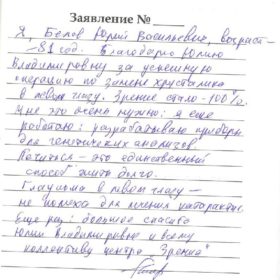 Заявление №
Я, Белов Юрий Васильевич, возраст-
-81 год. Благодарю Юлию
Владимировну за успешную
операцию по замене хрусталика
в левом глазу. Зрение стало -100%
Мне это очень нужно: я еще
работаю: разрабатываю приборы
для генетических анализов.
- это единственный
способ жить долго.
Глаукома в глазу -
не помеха для лечения катаракты.
Еще раз: большое спасибо
Юлии Владимировне и всему
коллективу центра "Зрение"